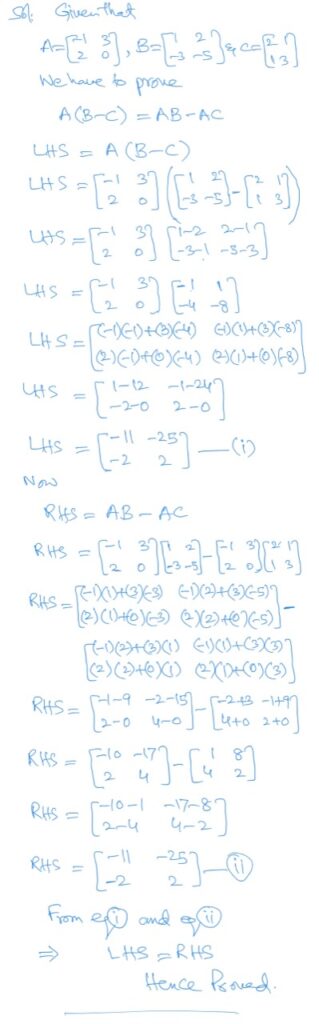 Sol: Given that
A=[-1 3
2 0], B=[1 2
-3 -5] & C=[2 1
1 3]
We have to prove
A(B-C) = AB-AC
LHS = A(B-C)
LHS = [-1 3
2 0] ([1 2
-3 -5]-[2 1
1 3])
LHS = [-1 3
2 0] [1-2 2-1
-3-1 -5-3]
LHS = [-1 3
2 0] [-1 1
-4 -8]
LHS = [(-1)(-1)+(3)(-4) (-1)(1)+(3)(-8)
(2)(-1)+(0)(-4) (2)(1)+(0)(-8)]
LHS = [1-12 -1-24
-2-0 2-0]
LHS = [-11 -25
-2 2] —(i)
Now
RHS = AB - AC
RHS = [-1 3
2 0][1 2
-3 -5]-[-1 3
2 0][2 1
1 3]
RHS = [(-1)(1)+(3)(-3) (-1)(2)+(3)(-5)
(2)(1)+(0)(-3) (2)(2)+(0)(-5)] -
[(-1)(2)+(3)(1) (-1)(1)+(3)(3)
(2)(2)+(0)(1) (2)(1)+(0)(3)]
RHS = [-1-9 -2-15
2-0 4-0]-[-2+3 -1+9
4+0 2+0]
RHS = [-10 -17
2 4]-[1 8
4 2]
RHS = [-10-1 -17-8
2-4 4-2]
RHS = [-11 -25
-2 2]—(ii)
From eq(i) and eq(ii)
⇒ LHS = RHS
Hence Proved.